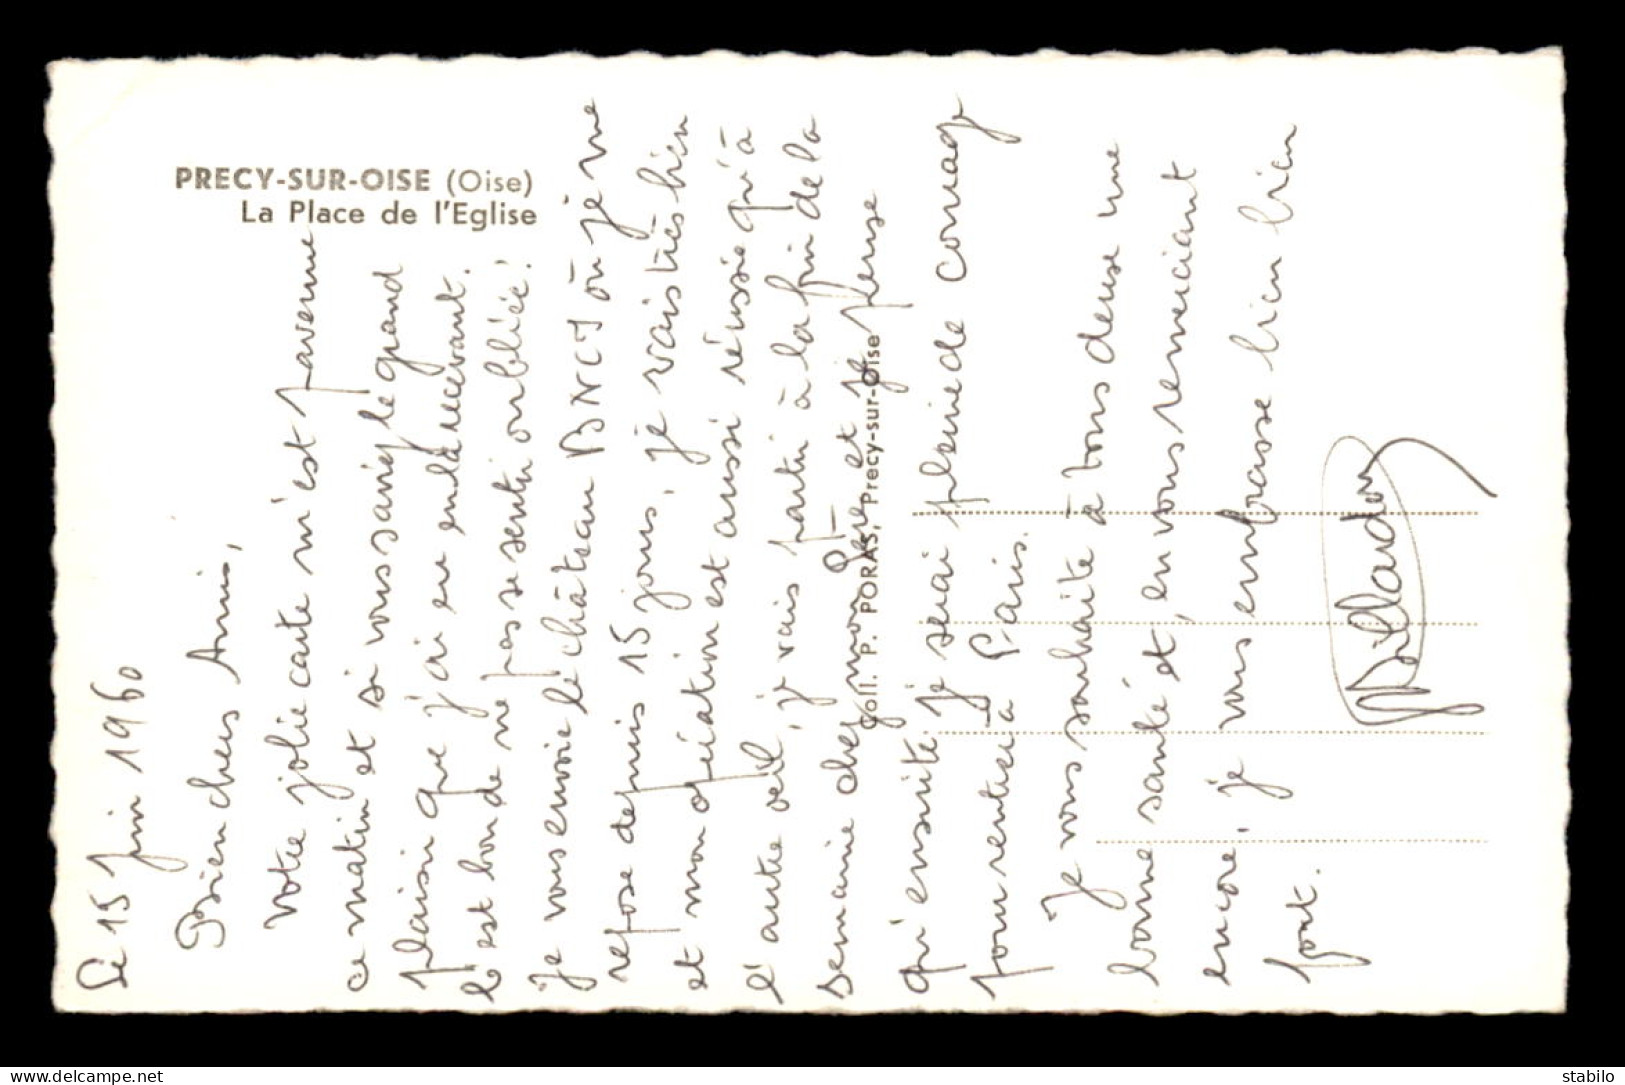 PRECY-SUR-OISE (Oise)
La Place de l'Eglise
Le 15 Juin 1960
Bien chers Amis,
Votre jolie carte m'est parvenue
ce matin et si vous saviez le grand
plaisir que j'ai eu en la recevant.
C'est bon de ne pas se sentir oubliée!
Je vous envoie le château BNCI où je me
repose depuis 15 jours, je vais très bien
et mon opération est aussi réussie qu'à
l'autre oeil, je vais partir à la fin de la
semaine chez mon et je pense
qu'ensuite je serai pleine de courage
pour rentrer à Paris.
Je vous souhaite à tous deux une
bonne santé et, en vous remerciant
encore, je vous embrasse bien bien
fort.
Billardon
Coll. P. PORAS, Precy-sur-Oise
stabilo